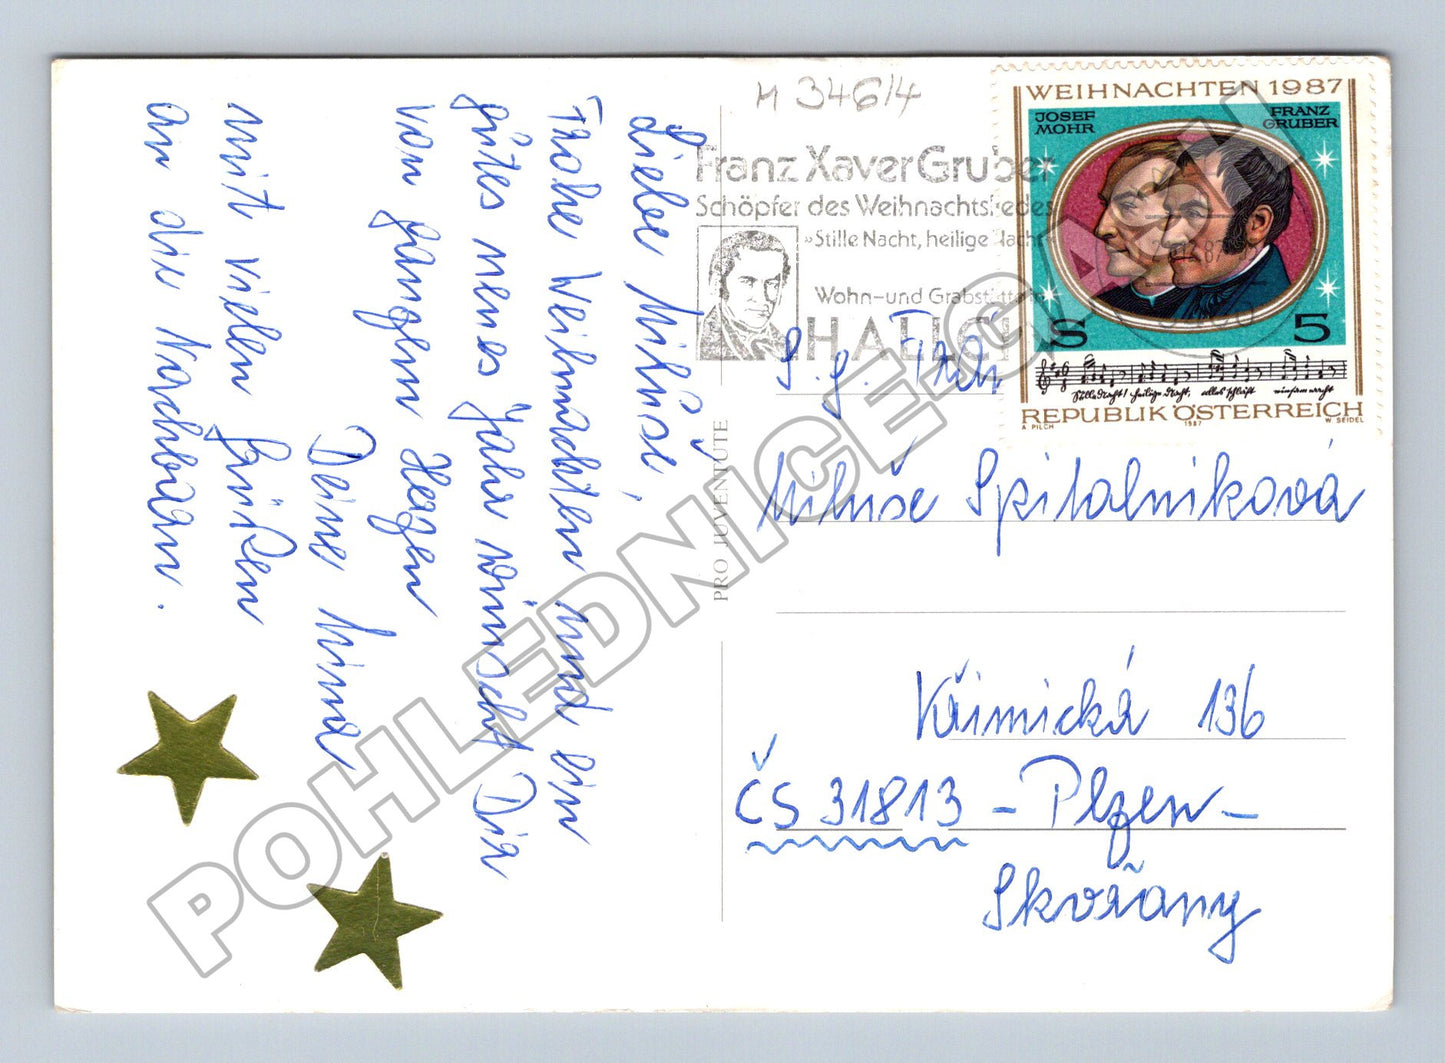 M 346/4
Liebe Miluše,
Frohe Weihnachten und ein
gutes neues Jahr wünscht Dir
von ganzem Herzen
Deine Mima
mit vielen Grüßen
an die Nachbarn.
PRO JUVENTUTE
Franz Xaver Gruber
Schöpfer des Weihnachtsliedes
»Stille Nacht, heilige Nacht«
Wohn-und Grabstätte
HALLEI
WEIHNACHTEN 1987
JOSEF
MOHR
FRANZ
GRUBER
S 5
Stille Nacht! heilige Nacht, alles schläft einsam wacht
REPUBLIK ÖSTERREICH
A. PILCH 1987 W. SEIDEL
S. g. Frau
Miluše Spitalniková
Křimická 136
ČS 31813 – Plzen –
Skvořany
POHLEDNICE-CASH